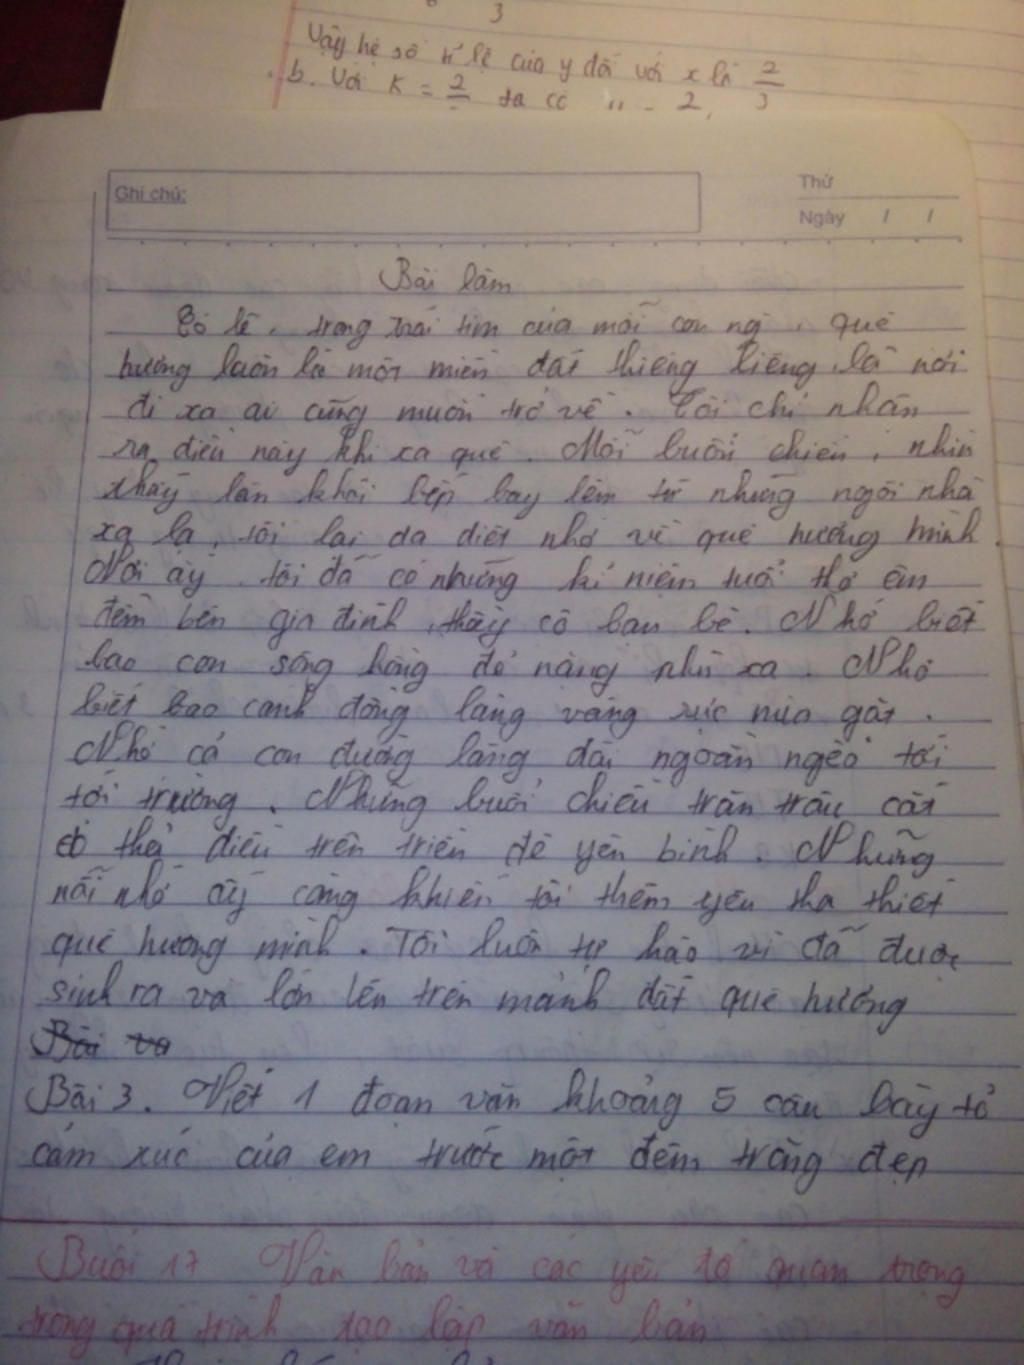 3
Vậy hệ số tỉ lệ của y đối với x là 2/3
b. Với K = 2 ta có 2
Ghi chú:
Thứ
Ngày / /
Bài làm
Có lẽ, trong trái tim của mỗi con ng, quê
hương luôn là một miền đất thiêng liêng, là nơi
đi xa ai cũng muốn trở về. Tôi chỉ nhận
ra điều này khi xa quê. Mỗi buổi chiều, nhìn
thấy làn khói bếp bay lên từ những ngôi nhà
xa lạ, tôi lại da diết nhớ về quê hương mình.
Nơi ấy tôi đã có những kỉ niệm tuổi thơ êm
đềm bên gia đình, thầy cô bạn bè. Nhớ biết
bao con sông hồng đỏ nặng phù xa. Nhớ
biết bao cánh đồng làng vàng rực mùa gặt.
Nhớ cả con đường làng dài ngoằn ngèo tới
tới trường. Những buổi chiều trăn trâu cắt
cỏ thả diều trên triền đê yên bình. Những
nỗi nhớ ấy càng khiến tôi thêm yêu tha thiết
quê hương mình. Tôi luôn tự hào vì đã được
sinh ra và lớn lên trên mảnh đất quê hương
Bài
Bài 3. Viết 1 đoạn văn khoảng 5 câu bày tỏ
cảm xúc của em trước một đêm trăng đẹp
Buổi 17 Văn bản và các yếu tố quan trọng
trong quá trình tạo lập văn bản